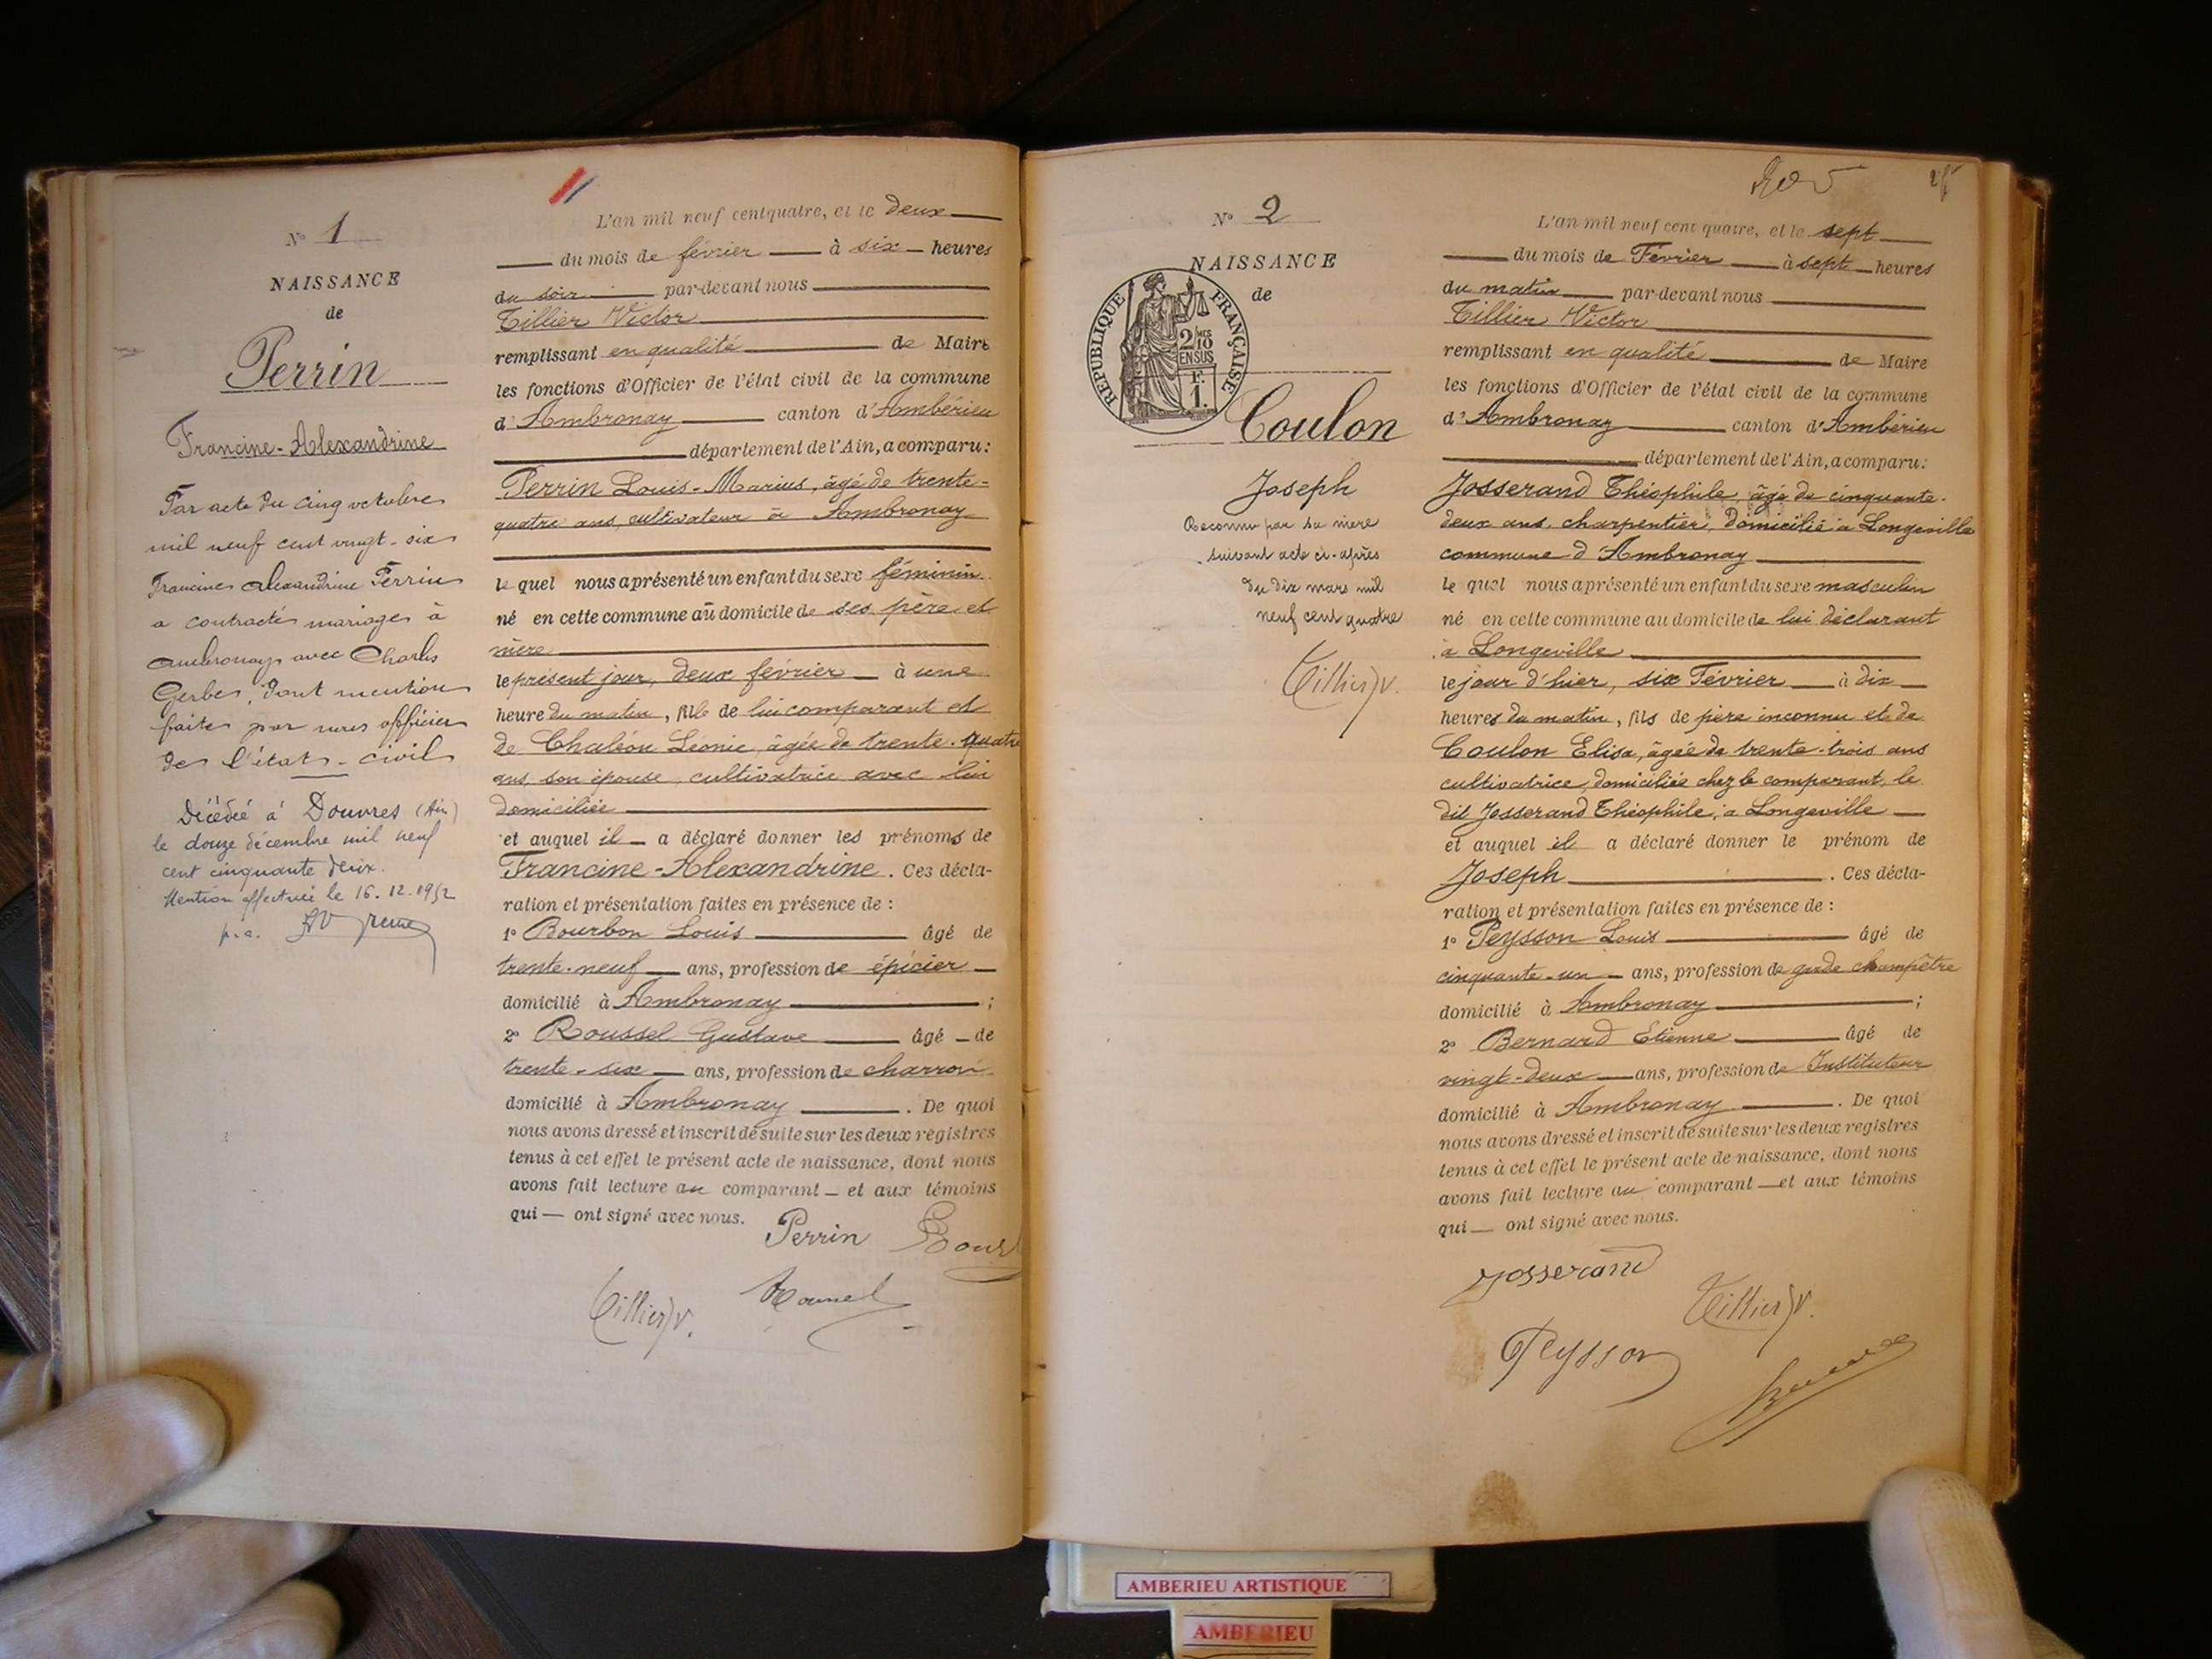 N° 1
NAISSANCE
de
Perrin
Francine-Alexandrine
Par acte du cinq octobre
mil neuf cent vingt-six
Francine Alexandrine Perrin
a contracté mariage à
Ambronay avec Charles
Gerbe, dont mention
faite par nous officier
de l'état-civil
Décédée à Douvres (Ain)
le douze décembre mil neuf
cent cinquante deux.
Mention effectuée le 16.12.1952
p.c.
L'an mil neuf cent quatre, et le deux
du mois de février à six heures
du soir par-devant nous
Tillier Victor
remplissant en qualité de Maire
les fonctions d'Officier de l'état civil de la commune
d'Ambronay canton d'Ambérieu
département de l'Ain, a comparu:
Perrin Louis-Marius, âgé de trente-
quatre ans, cultivateur à Ambronay
le quel nous a présenté un enfant du sexe féminin
né en cette commune au domicile de ses père et
mère
le présent jour, deux février à une
heure du matin, fille de lui comparant et
de Chaléon Léonie, âgée de trente-quatre
ans, son épouse, cultivatrice avec lui
domiciliée
et auquel il a déclaré donner les prénoms de
Francine-Alexandrine. Ces décla-
ration et présentation faites en présence de :
1° Bourbon Louis âgé de
trente-neuf ans, profession de épicier
domicilié à Ambronay ;
2° Roussel Gustave âgé de
trente-six ans, profession de charron
domicilié à Ambronay. De quoi
nous avons dressé et inscrit de suite sur les deux registres
tenus à cet effet le présent acte de naissance, dont nous
avons fait lecture au comparant et aux témoins
qui ont signé avec nous.
Perrin Bour
Tillier V. Roussel
N° 2
NAISSANCE
de
REPUBLIQUE FRANÇAISE
2/10 MES
EN SUS
F.
1.
Coulon
Joseph
Reconnu par sa mère
suivant acte ci-après
du dix mars mil
neuf cent quatre
Tillier V.
L'an mil neuf cent quatre, et le sept
du mois de Février à sept heures
du matin par-devant nous
Tillier Victor
remplissant en qualité de Maire
les fonctions d'Officier de l'état civil de la commune
d'Ambronay canton d'Ambérieu
département de l'Ain, a comparu:
Josserand Théophile, âgé de cinquante-
deux ans, charpentier, domicilié à Longeville
commune d'Ambronay
le quel nous a présenté un enfant du sexe masculin
né en cette commune au domicile de lui déclarant
à Longeville
le jour d'hier, six Février à dix
heures du matin, fils de père inconnu et de
Coulon Elisa, âgée de trente-trois ans
cultivatrice, domiciliée chez le comparant, le
dit Josserand Théophile, à Longeville
et auquel il a déclaré donner le prénom de
Joseph. Ces décla-
ration et présentation faites en présence de :
1° Peysson Louis âgé de
cinquante-un ans, profession de garde champêtre
domicilié à Ambronay ;
2° Bernard Etienne âgé de
vingt-deux ans, profession de Instituteur
domicilié à Ambronay. De quoi
nous avons dressé et inscrit de suite sur les deux registres
tenus à cet effet le présent acte de naissance, dont nous
avons fait lecture au comparant et aux témoins
qui ont signé avec nous.
Josserand
Tillier V.
Peysson
AMBERIEU ARTISTIQUE
AMBERIEU